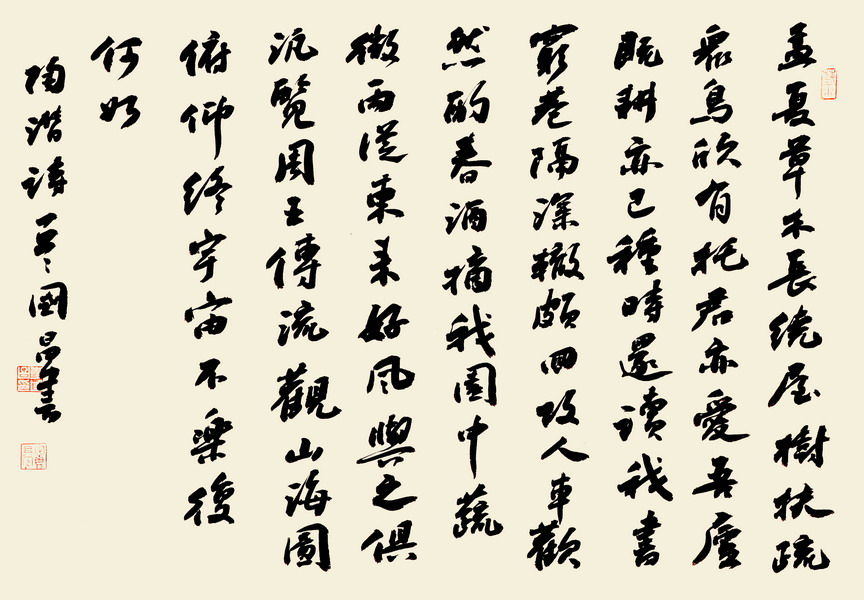 孟夏草木長繞屋樹扶疏
眾鳥欣有托君亦愛吾廬
既耕亦已種時還讀我書
窮巷隔深轍頗回故人車歡
然酌春酒摘我園中蔬
微雨從東來好風與之俱
汎覽周王傳流觀山海圖
俯仰終宇宙不樂復
何如
陶潛詩一首國昌書